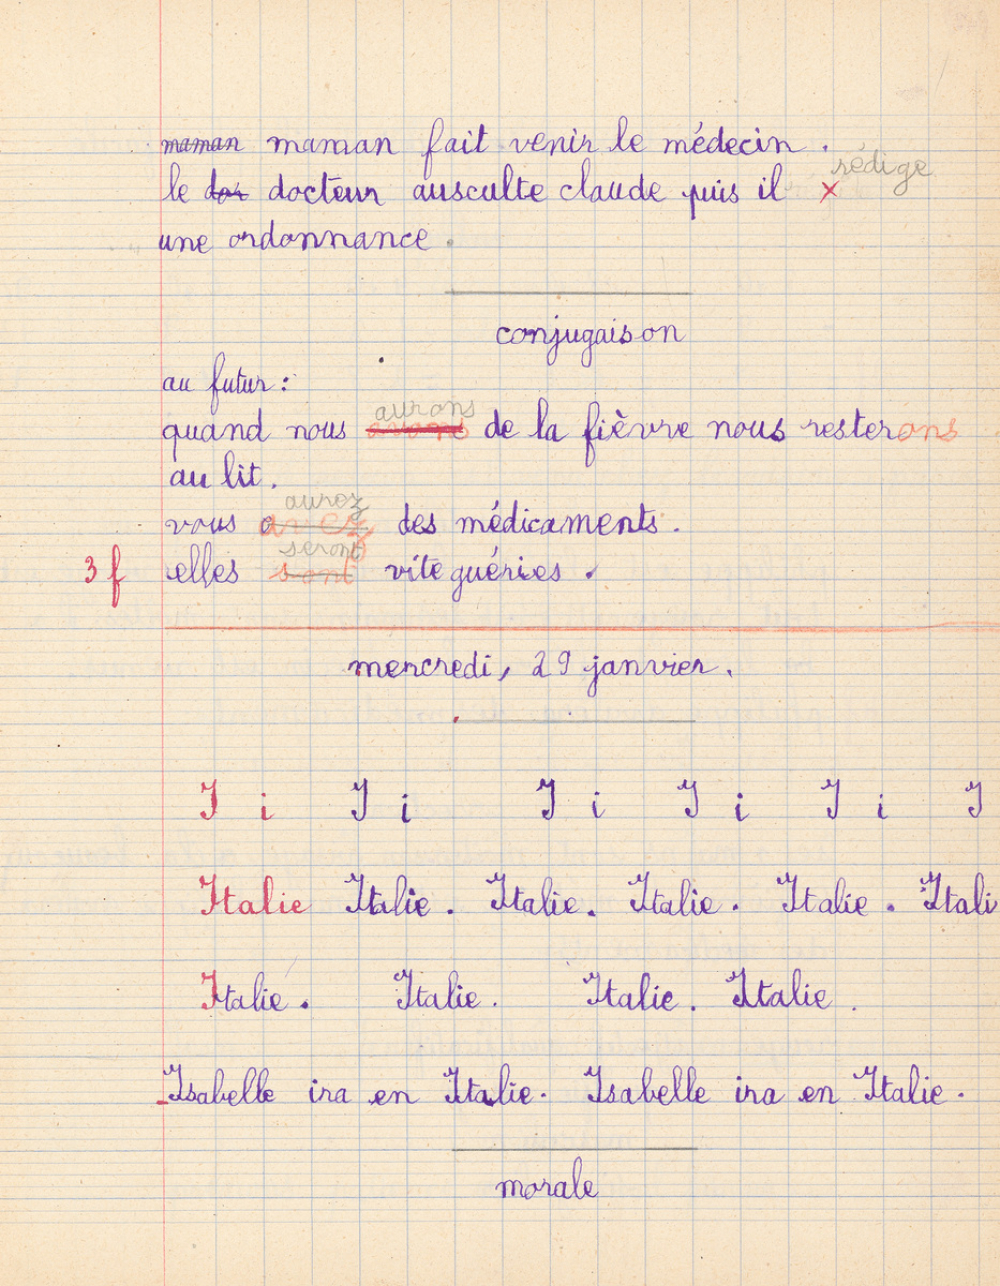 maman maman fait venir le médecin .
rédige
le doc docteur ausculte claude puis il x
une ordonnance .
conjugaison
au futur :
aurons
quand nous avons de la fièvre nous resterons
au lit .
aurez
vous avez des médicaments .
seront
3 f elles sont vite guéries .
mercredi, 29 janvier .
I i I i I i I i I i I
Italie Italie . Italie . Italie . Italie . Itali
Italie . Italie . Italie . Italie .
Isabelle ira en Italie . Isabelle ira en Italie .
morale